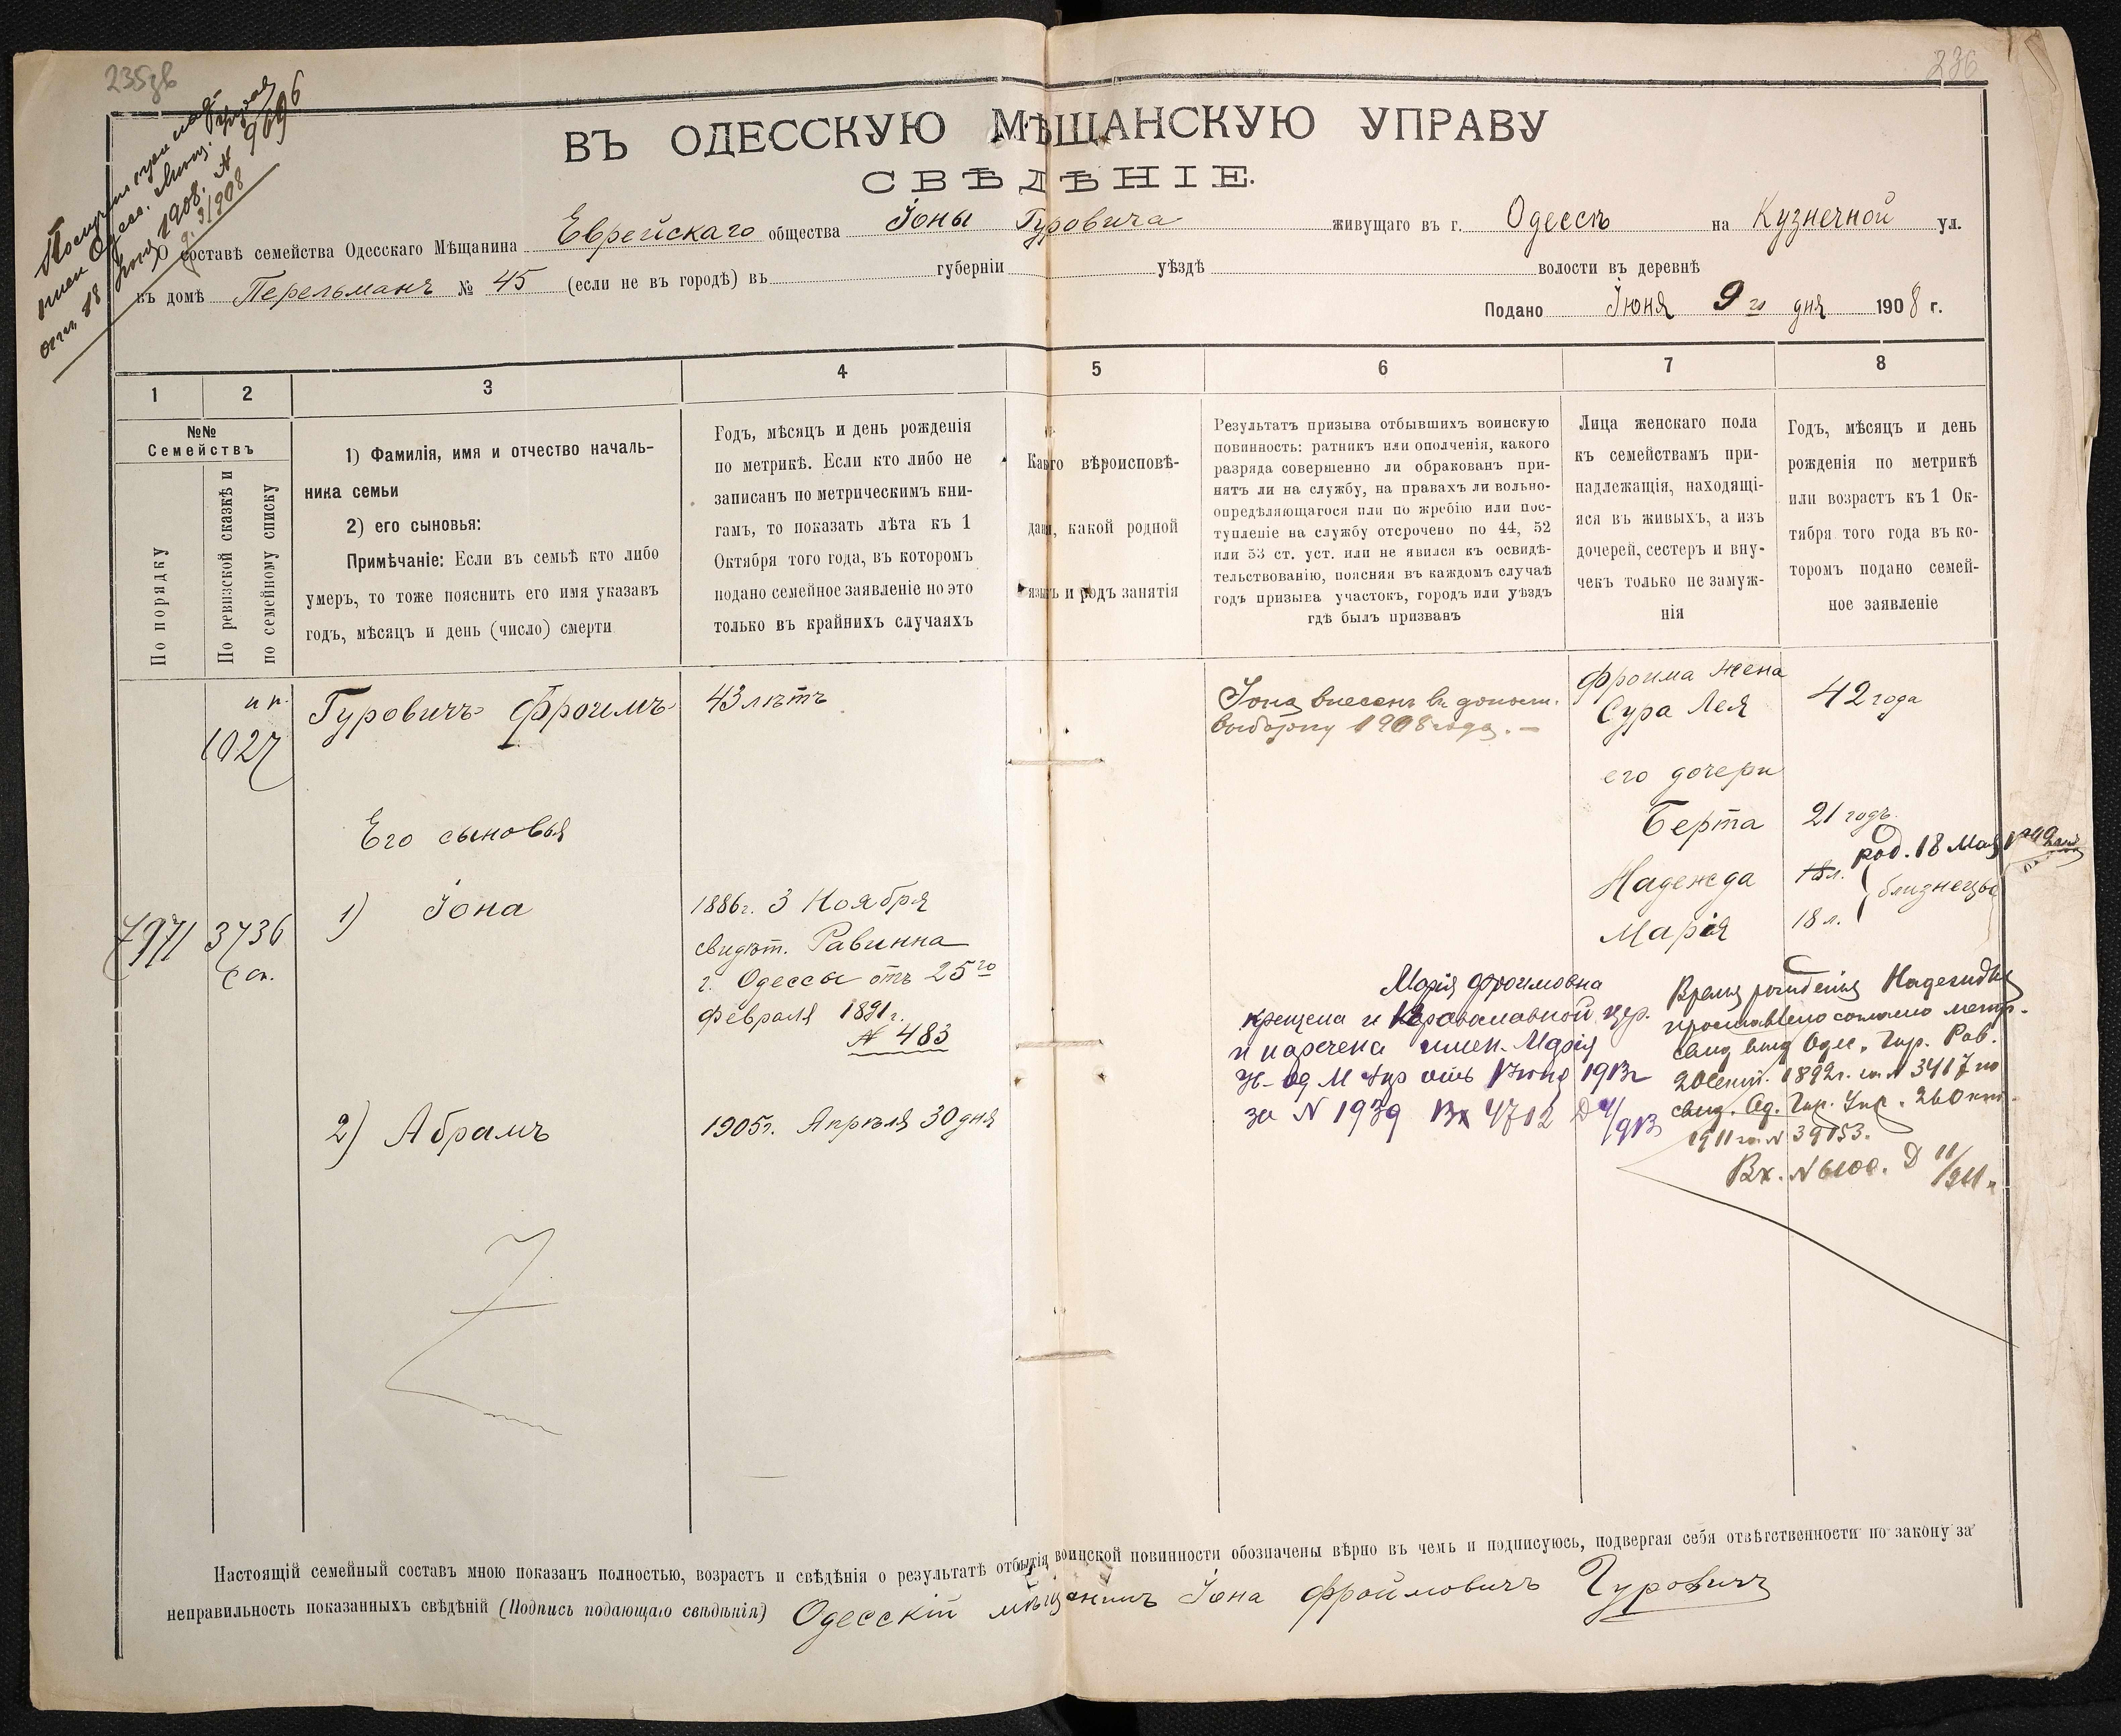 236
ВЪ ОДЕССКУЮ МѢЩАНСКУЮ УПРАВУ
СВѢДѢНІЕ.
О составѣ семейства Одесскаго Мѣщанина Еврейскаго общества Іоны Гуровича живущаго въ г. Одессѣ на Кузнечной ул.
въ домѣ Перельманъ № 45 (если не въ городѣ) въ губерніи уѣздѣ волости въ деревнѣ
Подано Іюня 9го дня 1908 г.
1 2 3 4 5 6 7 8
№№
Семействъ
По порядку
По ревизской сказкѣ и
по семейному списку
1) Фамилія, имя и отчество началь-
ника семьи
2) его сыновья:
Примѣчаніе: Если въ семьѣ кто либо
умеръ, то тоже пояснить его имя указавъ
годъ, мѣсяцъ и день (число) смерти
Годъ, мѣсяцъ и день рожденія
по метрикѣ. Если кто либо не
записанъ по метрическимъ кни-
гамъ, то показать лѣта къ 1
Октября того года, въ которомъ
подано семейное заявленіе но это
только въ крайнихъ случаяхъ
Какого вѣроисповѣ-
данія, какой родной
языкъ и родъ занятія
Результатъ призыва отбывшихъ воинскую
повинность: ратникъ или ополченія, какого
разряда совершенно ли обракованъ при-
нятъ ли на службу, на правахъ ли вольно-
опредѣляющагося или по жребію или пос-
тупленіе на службу отсрочено по 44, 52
или 53 ст. уст. или не явился къ освидѣ-
тельствованію, поясняя въ каждомъ случаѣ
годъ призыва участокъ, городъ или уѣздъ
гдѣ былъ призванъ
Лица женскаго пола
къ семействамъ при-
надлежащія, находящі-
яся въ живыхъ, а изъ
дочерей, сестеръ и вну-
чекъ только незамуж-
нія
Годъ, мѣсяцъ и день
рожденія по метрикѣ
или возрастъ къ 1 Ок-
тября того года въ ко-
торомъ подано семей-
ное заявленіе
1027
Гуровичъ Фроимъ
43 лѣтъ
Іона внесенъ въ дополн.
выборку 1908 года. -
Фроима жена
Сура Лея
42 года
его дочери
Его сыновья
Берта
21 годъ.
род. 18 Мая
Надежда
18 л.
близнецы
Марія
18 л.
7971
3736
1) Іона
1886г. 3 Ноября
свидѣт. Равинна
г. Одессы отъ 25го
Февраля 1891г.
№ 483
2) Абрамъ
1905г. Апрѣля 30 дня
Марія Фроимовна
крещена и Православной цер.
и наречена имен. Марія
1913г
за N 1939 Вх 4712
Время рожденія Надежды
проставлено согласно метр.
1892г. за N 3417
1911 за N 39153.
Вх. N 6100. Д 11/911 г.
Настоящій семейный составъ мною показанъ полностью, возрастъ и свѣдѣнія о результатѣ отбытія воинской повинности обозначены вѣрно въ чемъ и подписуюсь, подвергая себя отвѣтственности по закону за
неправильность показанныхъ свѣдѣній (Подпись подающаго свѣдѣнія) Одесскій мѣщанинъ Іона Фроймовичъ Гуровичъ